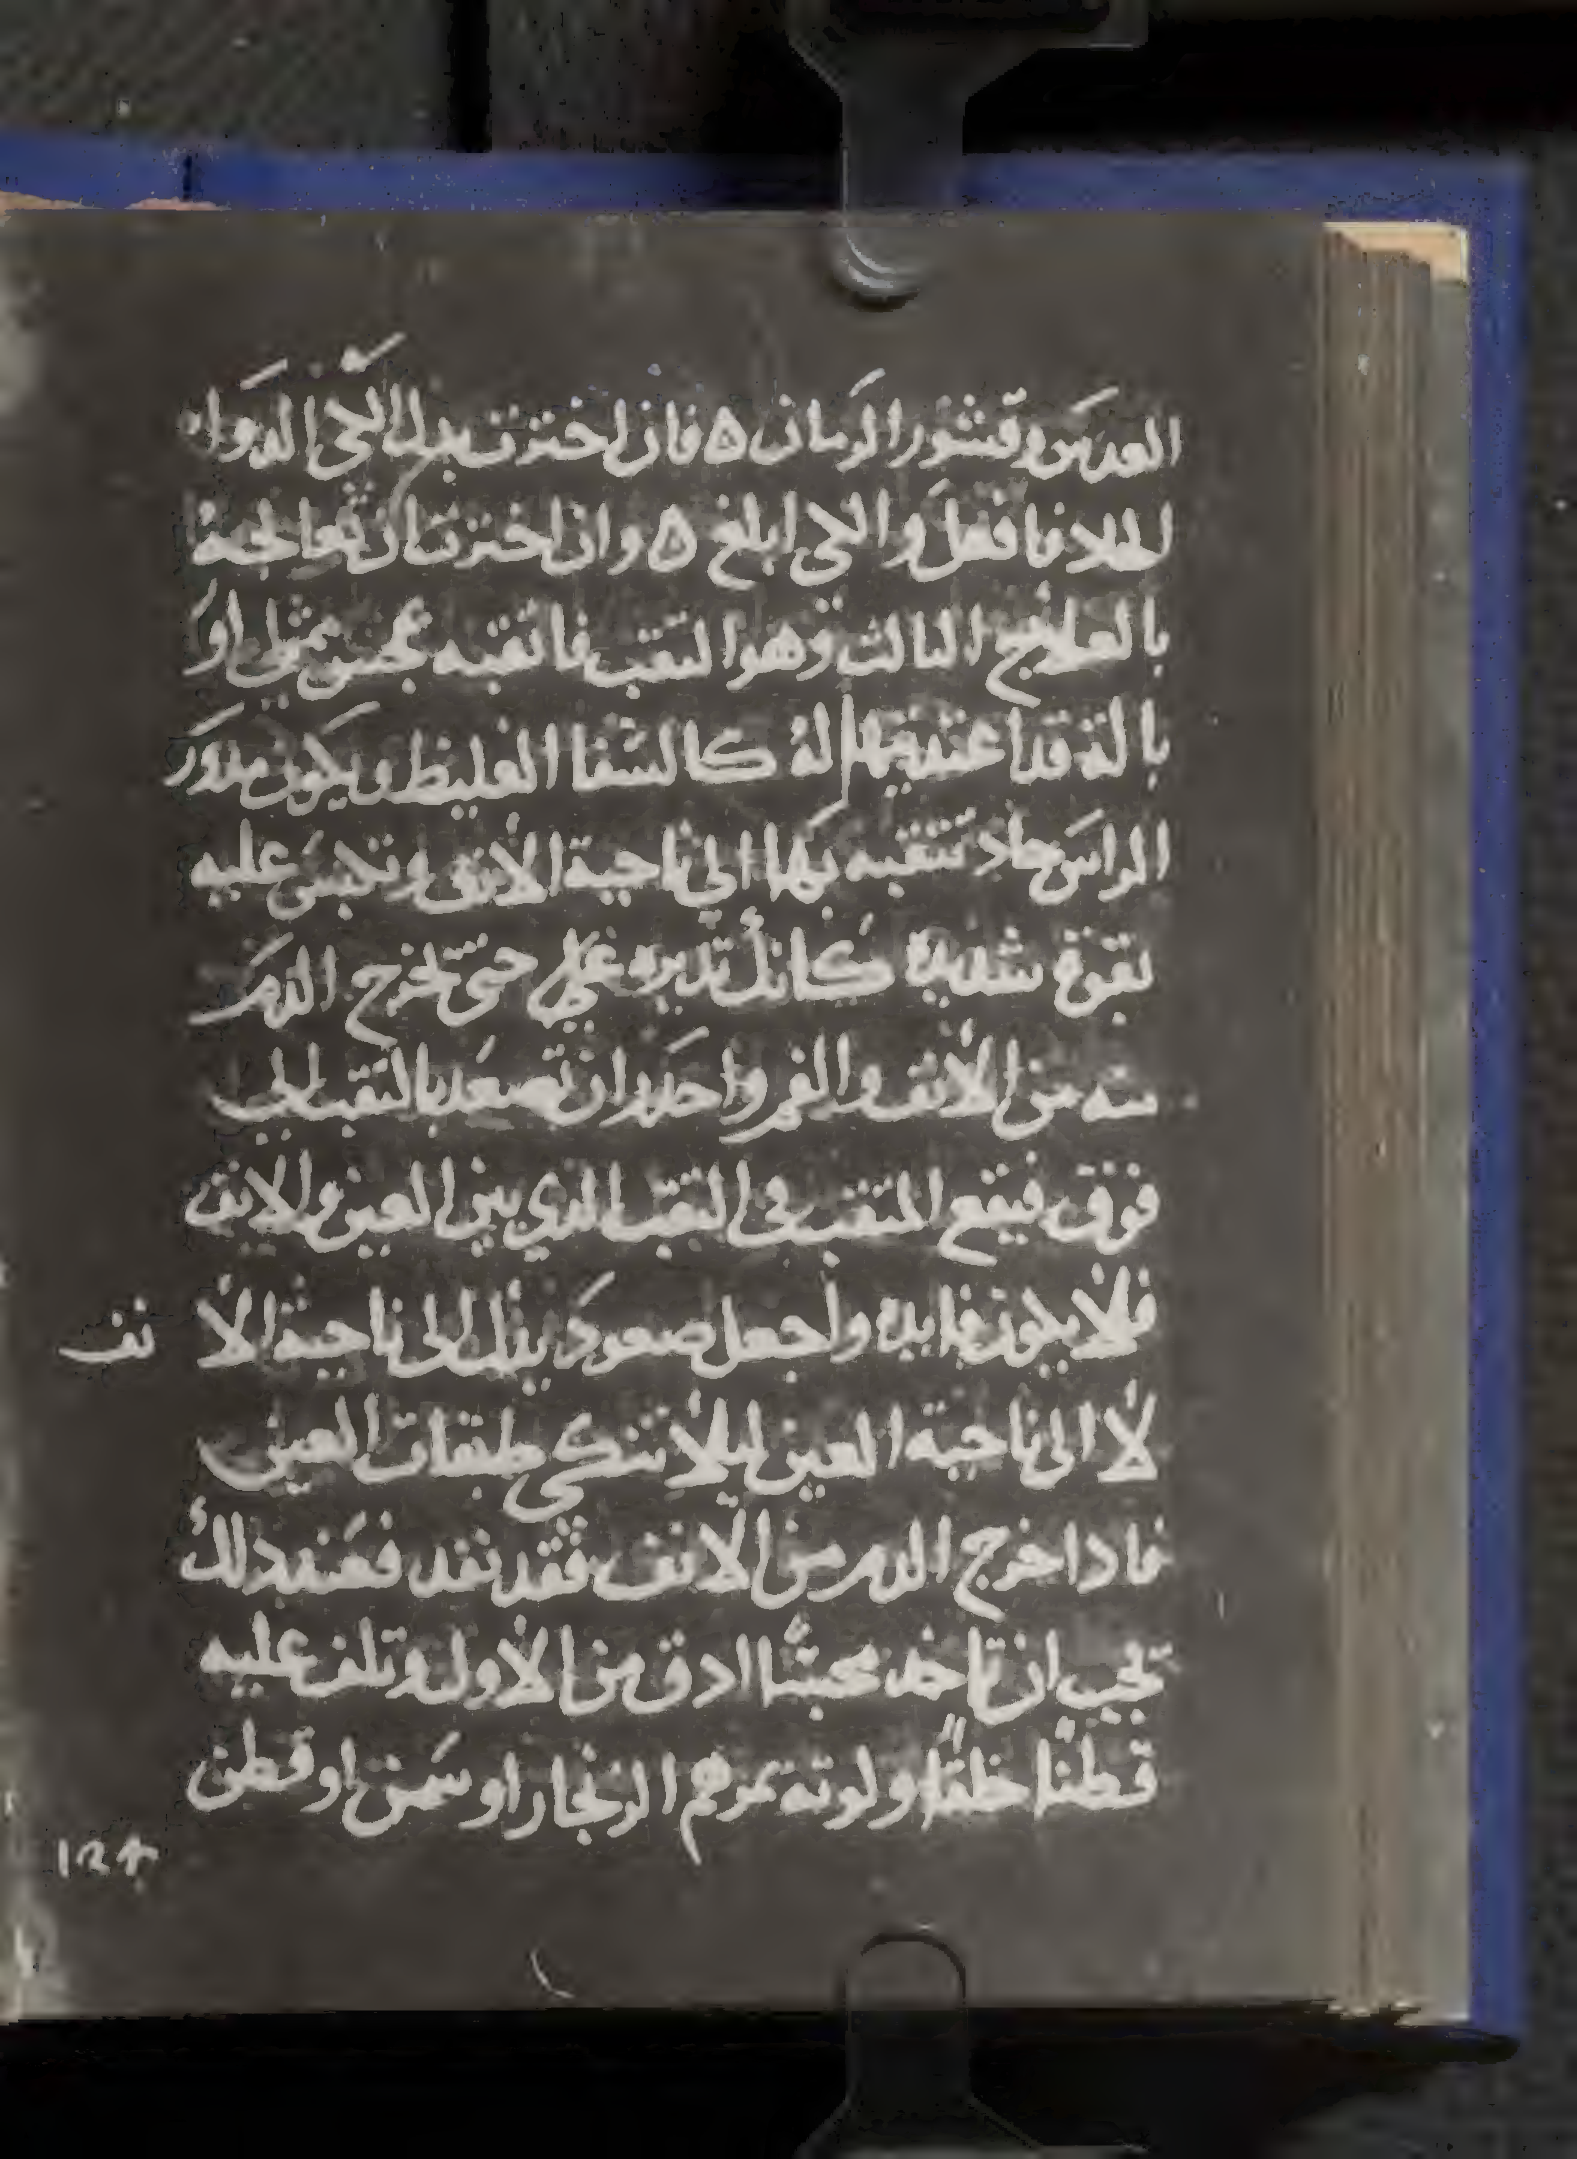 العدس وقشور الرمان ه فان اخترت بدل الكي الدواء
الحاد فافعل والكي ابلغ ه وان اخترت ان تعالجه
بالعلاج الثالث وهو الثقب فاثقبه بمجس او
بالة قد اعتدتها له كالشفا الغليظ ويكون مدور
الراس حاد تثقبه بها الى ناحية الانف وتحبس عليه
بقوة شديدة كانك تديره حتى يخرج الدم
منه من الانف والفم واحذر ان تصعد بالثقب الى
فوق فيقع المثقب فى الثقب الذي بين العين والانف
فلا يكون فايدة واجعل صعود يدك الى ناحية الا نف
لا الى ناحية العين ليلا تنكي طبقات العين
فادا خرج الدم من الانف فقد نفد فعند دلك
يجب ان تاخد مجسا ادق من الاول وتلف عليه
قطنا خلقا ولوته بمرهم الزنجار او سمن او قطن